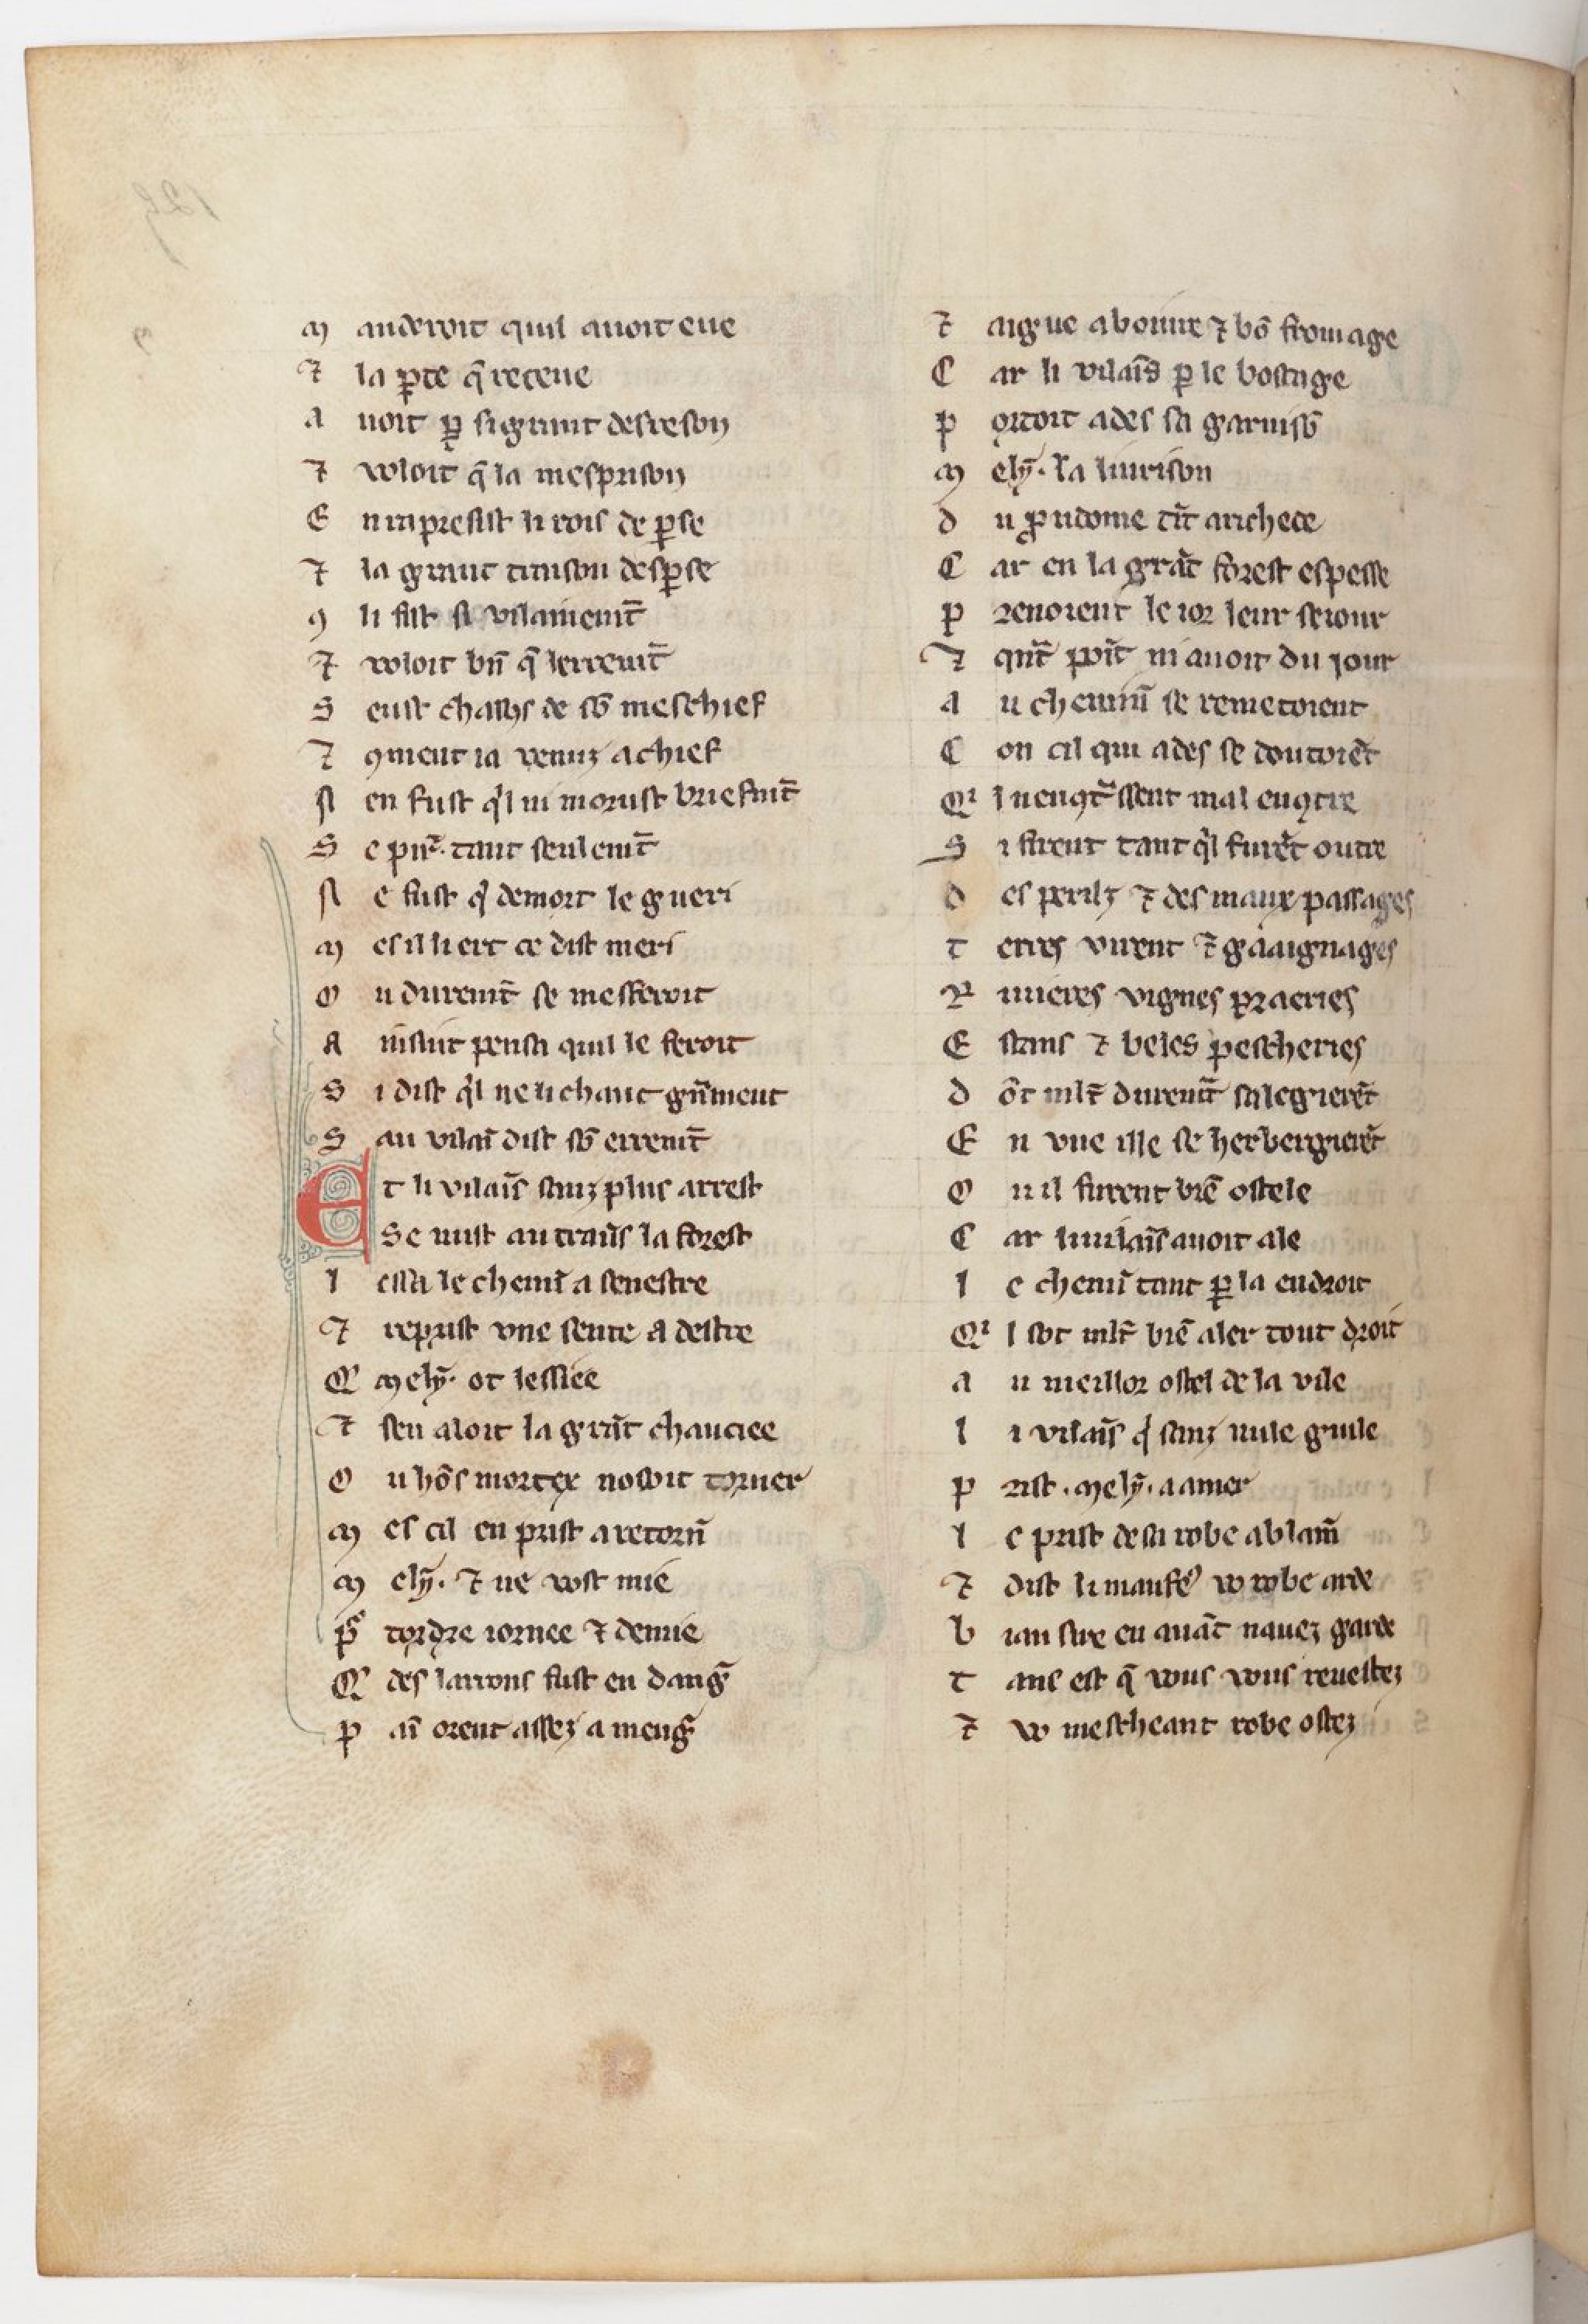 M anderoit quil auoit eue
⁊ la ꝑte q̄ receue
A uoit ꝑ si grant desreson
⁊ voloit q̄ la mesprison
E n inpresist li rois de ꝑse
⁊ la grant traison desꝑse
ꝯ li fist si vilainemt̄
⁊ voloit bn̄ q̄ lerremt̄
S eust chascꝰ de sō meschief
⁊ ꝯment ia venuz a chief
N en fust qͥl ni morust briefmt̄
S e tant seulemt̄
N e fust qͥ de mort le gueri
M es il li ert ce dist meri
O u duremt̄ se mesferoit
A insint pensa quil le feroit
S i dist qͥl ne li chaut gn̄ment
S au vilaī dist sō erremt̄
E t li vilaīs sanz plus arrest
Se mist au trauīs la forest
L essa le chemī a senestre
⁊ reprist vne sente a destre
Q mely᷑. ot lessiee
⁊ sen aloit la grāt chauciee
O u hōs mortex nosoit torner
M es cil en prist a retorn̄
M ely᷑. ⁊ ne vost mie
P᷑ tordre iornee ⁊ demie
Q des larrons fust en dang᷑
P aī orent assez a meng᷑
⁊ aigue a boiure ⁊ bō fromage
C ar li vilaīs ꝑ le boscage
P ortoit ades sa garnisō
M ely᷑. la liurison
D u ꝓudome tīt a richece
C ar en la grāt forest espesse
P renoient le ior leur seiour
⁊ qn̄t poīt ni auoit du iour
A u chemin se remetoient
C on cil qui ades se doutoiēt
Qͥ l nenꝯtᵃssent mal enꝯtre
S i firent tant qͥl furēt outre
D es perilz ⁊ des maux passages
T erres virent ⁊ gaaignages
R iuieres vignes praeries
E stans ⁊ beles pescheries
D ōt mlt̄ duremt̄ salegierēt
E n vne ille se herbergierēt
O u il furent biē ostele
C ar li vilaīs auoit ale
L e chemī tant ꝑ la endroit
Qͥ l sot mlt̄ biē aler tout droit
A u meillor ostel de la vile
L i vilaīs qͥ sanz nule guile
P rist. mely᷑. a amer
L e prist de sa robe a blam̄
⁊ dist li maufeꝰ vo robe arde
B iau sire en auāt nauez garde
T ans est q̄ vous vous reuestez
⁊ vo mescheant robe ostez